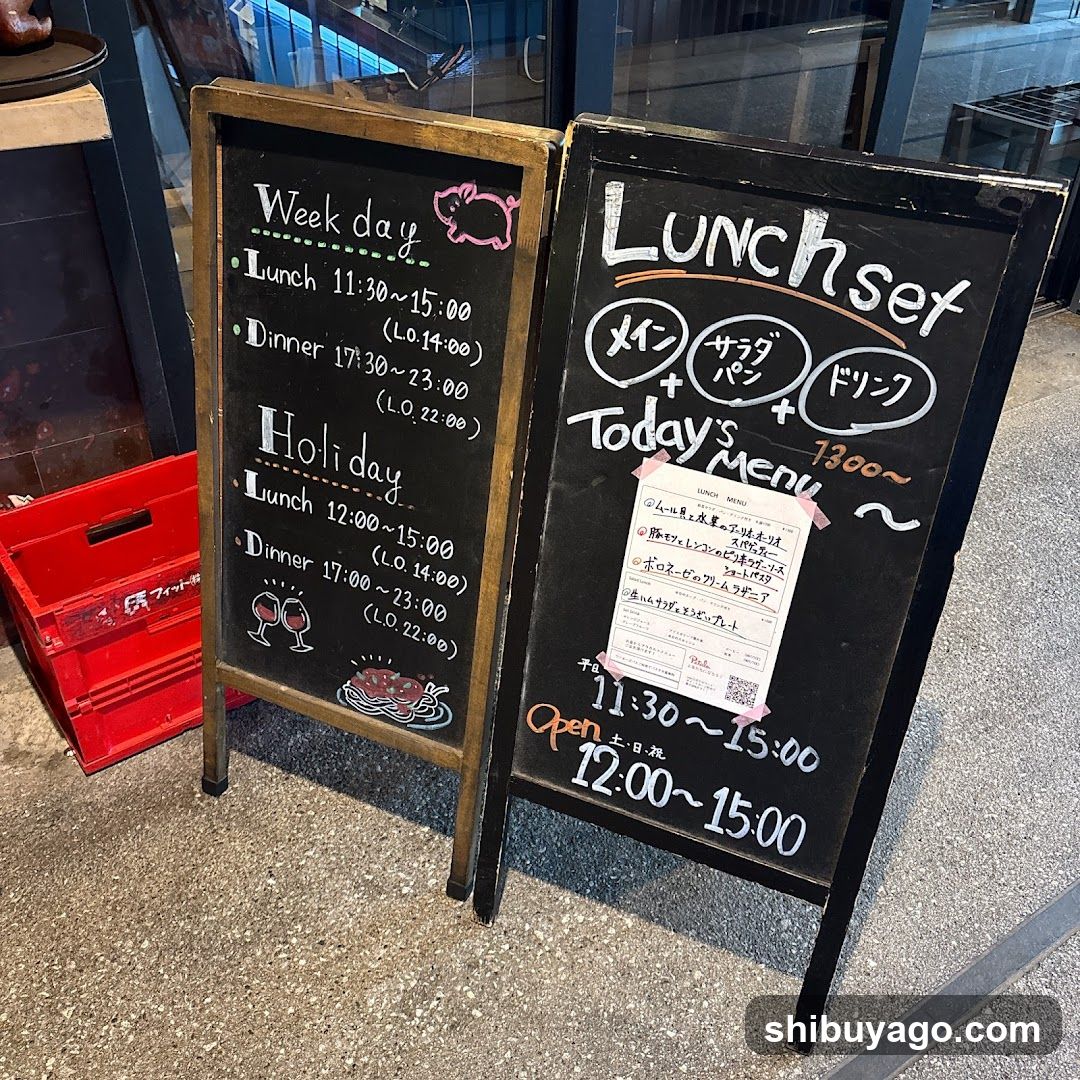 Week day
Lunch 11:30~15:00
(L.O.14:00)
Dinner 17:30~23:00
(L.O. 22:00)
Holiday
Lunch 12:00~15:00
(L.O. 14:00)
Dinner 17:00~23:00
(L.O. 22:00)
Lunch set
メイン + サラダ パン + ドリンク
Today's Menu 1300~
LUNCH MENU
ムール貝と水菜のアーリオ・オーリオ
スパゲッティー
豚モツとレンコンのピリ辛ラグーソース
ショートパスタ
ボロネーゼのクリームラザニア
生ハムサラダとそうざいプレート
平日
11:30~15:00
Open 土・日・祝
12:00~15:00
フィット㈱
shibuyago.com